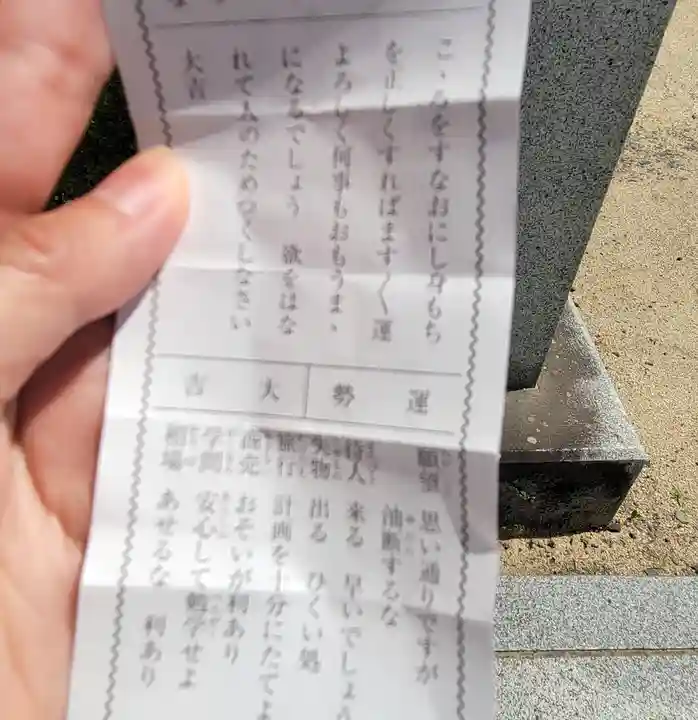 こゝろをすなおにし身もち
を正しくすればます〱運
よろしく何事もおもうまゝ
になるでしょう 欲をはな
れて人のためつくしなさい
大吉
運勢
大吉
願望 思い通りですが
油断するな
待人 来る 早いでしょう
失物 出る ひくい処
旅行 計画を十分にたてよ
商売 おそいが利あり
学問 安心して勉学せよ
相場 あせるな 利あり